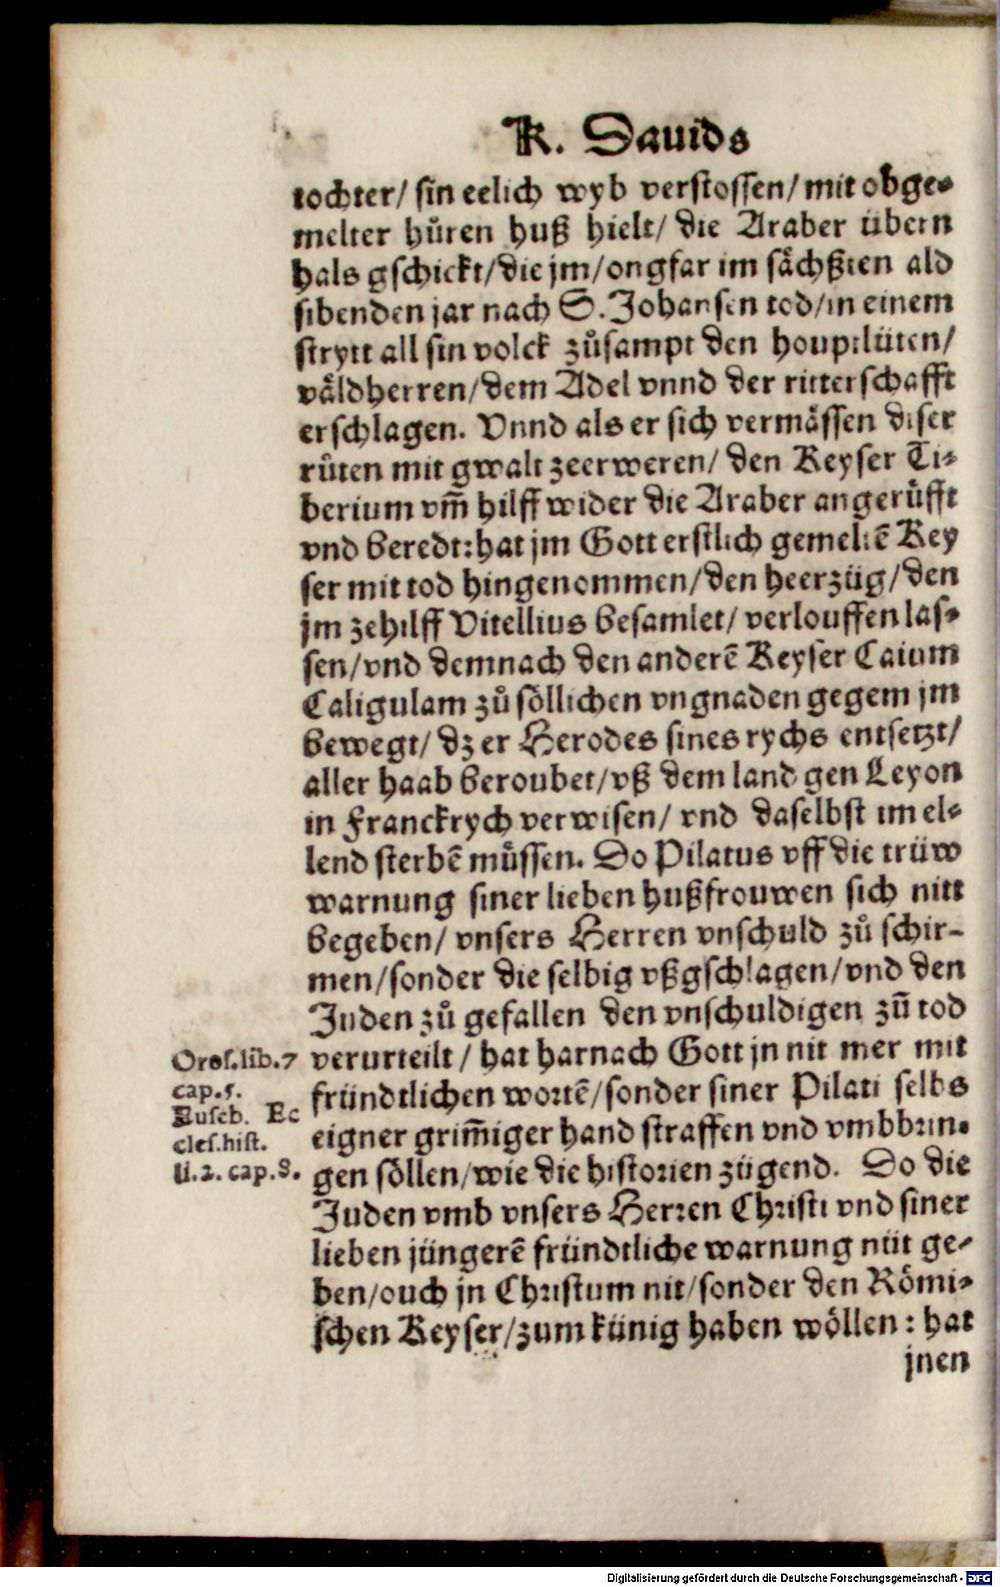 K. Dauids
tochter/ sin eelich wyb verstossen/ mit obge⸗
melter hůren huß hielt/ die Araber übern
hals gschickt/ die jm/ ongfar im sächßten ald
sibenden jar nach S. Johansen tod/ in einem
strytt all sin volck zůsampt den houptlüten/
väldherren/ dem Adel vnnd der ritterschafft
erschlagen. Vnnd als er sich vermässen diser
růten mit gwalt zeerweren/ den Keyser Ti⸗
berium vm̄ hilff wider die Araber angerüfft
vnd beredt: hat jm Gott erstlich gemeltē Key
ser mit tod hingenommen/ den heerzüg/ den
jm zehilff Vitellius besamlet/ verlouffen las⸗
sen/ vnd demnach den anderē Keyser Caium
Caligulam zů söllichen vngnaden gegem jm
bewegt/ dz er Herodes sines rychs entsetzt/
aller haab beroubet/ vß dem land gen Leyon
in Franckrych verwisen/ vnd daselbst im el⸗
lend sterbē müssen. Do Pilatus vff die trüw
warnung siner lieben hußfrouwen sich nitt
begeben/ vnsers Herren vnschuld zů schir-
men/ sonder die selbig vßgschlagen/ vnd den
Juden zů gefallen den vnschuldigen zū tod
verurteilt/ hat harnach Gott jn nit mer mit
fründtlichen wortē/ sonder siner Pilati selbs
eigner grim̄iger hand straffen vnd vmbbrin⸗
gen söllen/ wie die historien zügend. Do die
Juden vmb vnsers Herren Christi vnd siner
lieben jüngerē fründtliche warnung nüt ge⸗
ben/ ouch jn Christum nit/ sonder den Römi⸗
schen Keyser/ zum künig haben wöllen: hat
jnen
Oros. lib. 7
cap. 5.
Euseb. Ec
cles. hist.
li. 2. cap. 8.
Digitalisierung gefördert durch die Deutsche Forschungsgemeinschaft - DFG